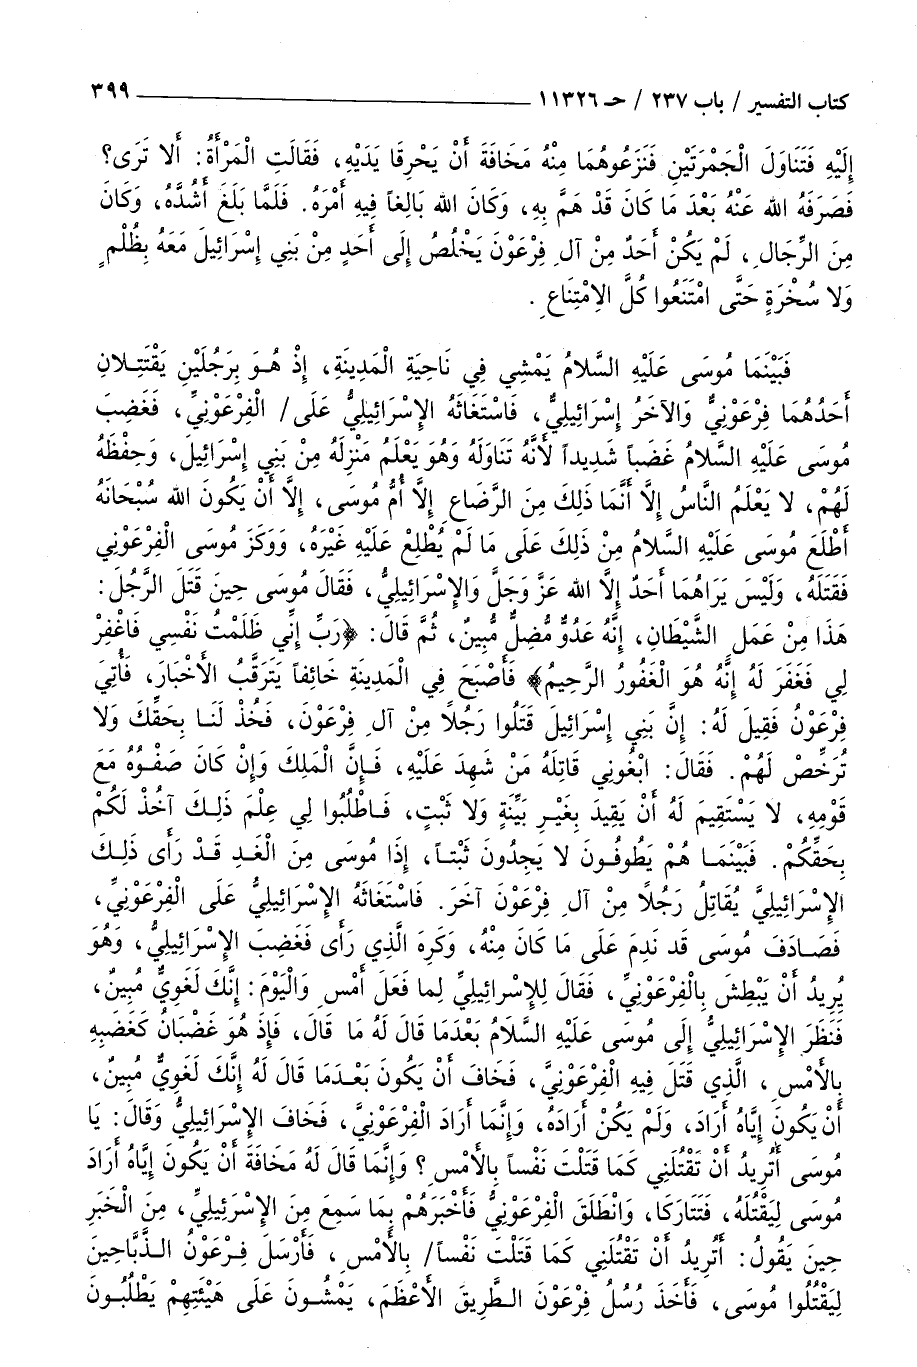 كتاب التفسير / باب ٢٣٧ / حـ ١١٣٢٦ ٣٩٩
إِلَيْهِ فَتَنَاوَلَ الْجَمْرَتَيْنِ فَنَزَعُوهُمَا مِنْهُ مَخَافَةَ أَنْ يَحْرِقَا يَدَيْهِ، فَقَالَتِ الْمَرْأَةُ: أَلا تَرَى؟
فَصَرَفَهُ الله عَنْهُ بَعْدَ مَا كَانَ قَدْ هَمَّ بِهِ، وَكَانَ الله بَالِغاً فِيهِ أَمْرَهُ. فَلَمَّا بَلَغَ أَشُدَّهُ، وَكَانَ
مِنَ الرِّجَالِ، لَمْ يَكُنْ أَحَدٌ مِنْ آلِ فِرْعَوْنَ يَخْلُصُ إِلَى أَحَدٍ مِنْ بَنِي إِسْرَائِيلَ مَعَهُ بِظُلْمٍ
وَلا سُخْرَةٍ حَتَّى امْتَنَعُوا كُلَّ الِامْتِنَاعِ.
فَبَيْنَمَا مُوسَى عَلَيْهِ السَّلَامُ يَمْشِي فِي نَاحِيَةِ الْمَدِينَةِ، إِذْ هُوَ بِرَجُلَيْنِ يَقْتَتِلانِ
أَحَدُهُمَا فِرْعَوْنِيٌّ وَالآخَرُ إِسْرَائِيلِيٌّ، فَاسْتَغَاثَهُ الإِسْرَائِيلِيُّ عَلَى/ الْفِرْعَوْنِيِّ، فَغَضِبَ
مُوسَى عَلَيْهِ السَّلامُ غَضَباً شَدِيداً لأَنَّهُ تَنَاوَلَهُ وَهُوَ يَعْلَمُ مَنْزِلَهُ مِنْ بَنِي إِسْرَائِيلَ، وَحِفْظَهُ
لَهُمْ، لا يَعْلَمُ النَّاسُ إِلَّا أَنَّمَا ذَلِكَ مِنَ الرَّضَاعِ إِلَّا أُمُّ مُوسَى، إِلَّا أَنْ يَكُونَ الله سُبْحَانَهُ
أَطْلَعَ مُوسَى عَلَيْهِ السَّلامُ مِنْ ذَلِكَ عَلَى مَا لَمْ يُطْلِعْ عَلَيْهِ غَيْرَهُ، وَوَكَزَ مُوسَى الْفِرْعَوْنِي
فَقَتَلَهُ، وَلَيْسَ يَرَاهُمَا أَحَدٌ إِلَّا الله عَزَّ وَجَلَّ وَالإِسْرَائِيلِيُّ، فَقَالَ مُوسَى حِينَ قَتَلَ الرَّجُلَ:
هَذَا مِنْ عَمَلِ الشَّيْطَانِ، إِنَّهُ عَدُوٌّ مُضِلٌّ مُبِينٌ، ثُمَّ قَالَ: ﴿رَبِّ إِنِّي ظَلَمْتُ نَفْسِي فَاغْفِرْ
لِي فَغَفَرَ لَهُ إِنَّهُ هُوَ الْغَفُورُ الرَّحِيمُ﴾ فَأَصْبَحَ فِي الْمَدِينَةِ خَائِفاً يَتَرَقَّبُ الأَخْبَارَ، فَأُتِيَ
فِرْعَوْنُ فَقِيلَ لَهُ: إِنَّ بَنِي إِسْرَائِيلَ قَتَلُوا رَجُلًا مِنْ آلِ فِرْعَوْنَ، فَخُذْ لَنَا بِحَقِّكَ وَلا
تُرَخِّصْ لَهُمْ. فَقَالَ: ابْغُونِي قَاتِلَهُ مَنْ شَهِدَ عَلَيْهِ، فَإِنَّ الْمَلِكَ وَإِنْ كَانَ صَفْوُهُ مَعَ
قَوْمِهِ، لا يَسْتَقِيمَ لَهُ أَنْ يَقِيدَ بِغَيْرِ بَيِّنَةٍ وَلا ثَبْتٍ، فَاطْلُبُوا لِي عِلْمَ ذَلِكَ آخُذْ لَكُمْ
بِحَقِّكُمْ. فَبَيْنَمَا هُمْ يَطُوفُونَ لا يَجِدُونَ ثَبْتاً، إِذَا مُوسَى مِنَ الْغَدِ قَدْ رَأَى ذَلِكَ
الإِسْرَائِيلِيَّ يُقَاتِلُ رَجُلًا مِنْ آلِ فِرْعَوْنَ آخَرَ. فَاسْتَغَاثَهُ الإِسْرَائِيلِيُّ عَلَى الْفِرْعَوْنِيِّ،
فَصَادَفَ مُوسَى قَد نَدِمَ عَلَى مَا كَانَ مِنْهُ، وَكَرِهَ الَّذِي رَأَى فَغَضِبَ الإِسْرَائِيلِيُّ، وَهُوَ
يُرِيدُ أَنْ يَبْطِشَ بِالْفِرْعَوْنِيِّ، فَقَالَ لِلإِسْرَائِيلِيِّ لِما فَعَلَ أَمْسِ وَالْيَوْمَ: إِنَّكَ لَغَوِيٌّ مُبِينٌ،
فَنَظَرَ الإِسْرَائِيلِيُّ إِلَى مُوسَى عَلَيْهِ السَّلامُ بَعْدَمَا قَالَ لَهُ مَا قَالَ، فَإِذَ هُوَ غَضْبَانُ كَغَضَبِهِ
بِالأَمْسِ، الَّذِي قَتَلَ فِيهِ الْفِرْعَوْنِيَّ، فَخَافَ أَنْ يَكُونَ بَعْدَمَا قَالَ لَهُ إِنَّكَ لَغَوِيٌّ مُبِينٌ،
أَنْ يَكُونَ إِيَّاهُ أَرَادَ، وَلَمْ يَكُنْ أَرَادَهُ، وَإِنَّمَا أَرَادَ الْفِرْعَوْنِيَّ، فَخَافَ الإِسْرَائِيلِيُّ وَقَالَ: يَا
مُوسَى أَتُرِيدُ أَنْ تَقْتُلَنِي كَمَا قَتَلْتَ نَفْساً بِالأَمْسِ؟ وَإِنَّمَا قَالَ لَهُ مَخَافَةَ أَنْ يَكُونَ إِيَّاهُ أَرَادَ
مُوسَى لِيَقْتُلَهُ، فَتَتَارَكَا، وَانْطَلَقَ الْفِرْعَوْنِيُّ فَأَخْبَرَهُمْ بِمَا سَمِعَ مِنَ الإِسْرَئِيلِيِّ، مِنَ الْخَبَرِ
حِينَ يَقُولُ: أَتُرِيدُ أَنْ تَقْتُلَنِي كَمَا قَتَلْتَ نَفْساً/ بِالأَمْسِ، فَأَرْسَلَ فِرْعَوْنُ الذَّبَّاحِينَ
لِيَقْتُلُوا مُوسَى، فَأَخَذَ رُسُلُ فِرْعَوْنَ الطَّرِيقَ الأَعْظَمَ، يَمْشُونَ عَلَى هَيْئَتِهِمْ يَطْلُبُونَ